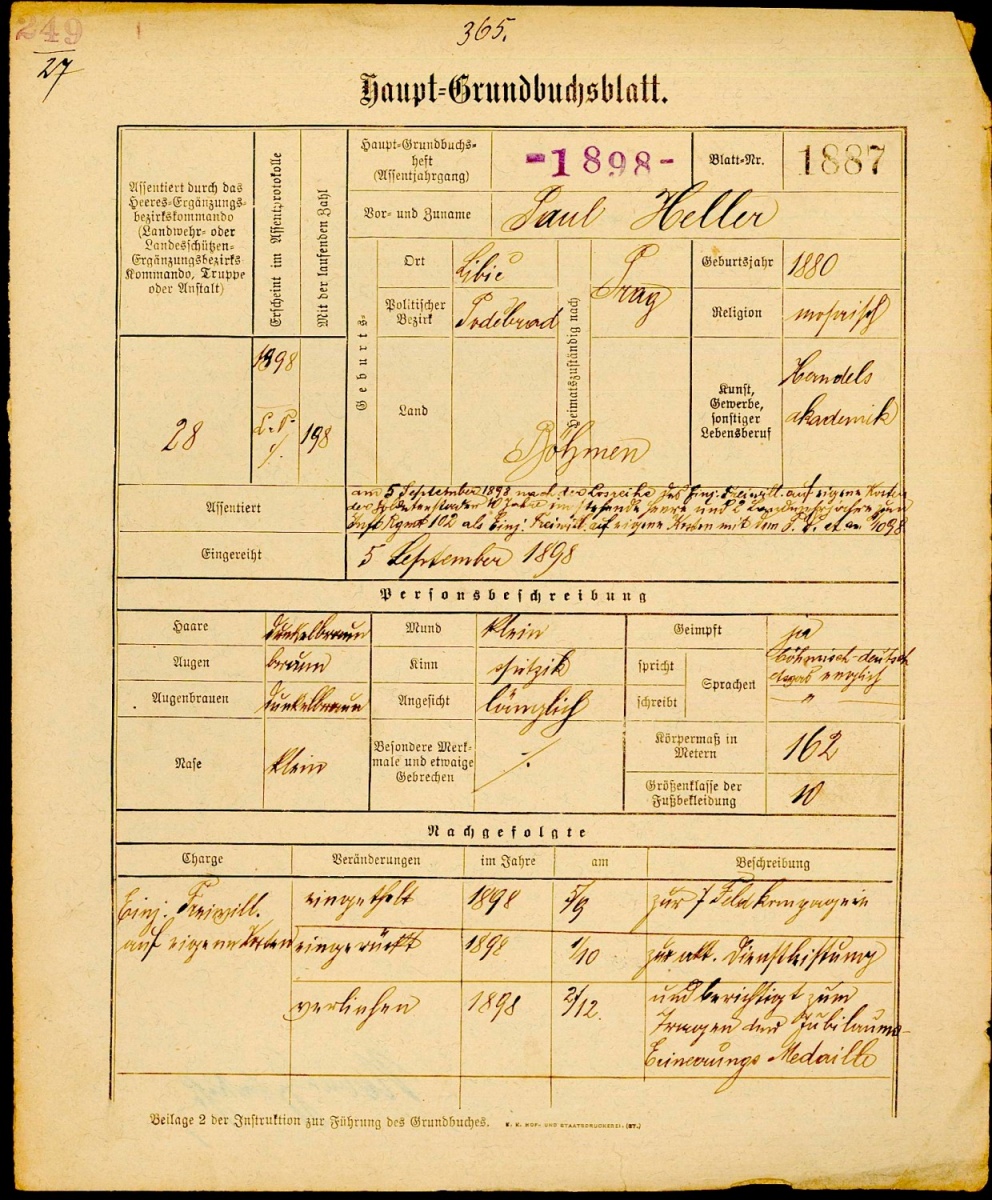 249
27
365.
Haupt-Grundbuchsblatt.
Assentiert durch das
Heeres-Ergänzungs-
bezirkskommando
(Landwehr- oder
Landesschützen-
Ergänzungsbezirks
Kommando, Truppe
oder Anstalt)
Erscheint im Assentprotokolle
Mit der laufenden Zahl
Haupt-Grundbuchs-
heft
(Assentjahrgang)
-1898-
Blatt-Nr.
1887
Vor- und Zuname
Paul Heller
Geburts-
Ort
Libic
Heimatszuständig nach
Prag
Geburtsjahr
1880
Politischer
Bezirk
Podebrad
Religion
mosaisch
28
1898
198
Land
Böhmen
Kunst,
Gewerbe,
sonstiger
Lebensberuf
Handels
akademik
Assentiert
am 5 September 1898 nach der Losreihe des Einj. Freiwill. auf eigene Kosten
Jahre im stehende Heere und 2 Landwehrjahre zum
Inft Rgmt 102 als Einj. Freiwill. auf eigene Kosten mit dem
Eingereiht
5 September 1898
Personsbeschreibung
Haare
dunkelbraun
Mund
klein
Geimpft
ja
Augen
braun
Kinn
spitzik
spricht
Sprachen
böhmisch-deutsch
englich
Augenbrauen
dunkelbraun
Angesicht
länglich
schreibt
"
Nase
klein
Besondere Merk-
male und etwaige
Gebrechen
./.
Körpermaß in
Metern
162
Größenklasse der
Fußbekleidung
10
Nachgefolgte
Charge
Veränderungen
im Jahre
am
Beschreibung
Einj. Freiwill.
eingetheilt
1898
5/9
zur 7 Feldkompagnie
auf eigene Kosten
eingerückt
1898
1/10
zur akt. Dienstleistung
verliehen
1898
2/12.
und berichtigt zum
Tragen der Jubiläums-
Erinerungs Medaille
Beilage 2 der Instruktion zur Führung des Grundbuches.
K. K. HOF- UND STAATSDRUCKEREI. (ST.)